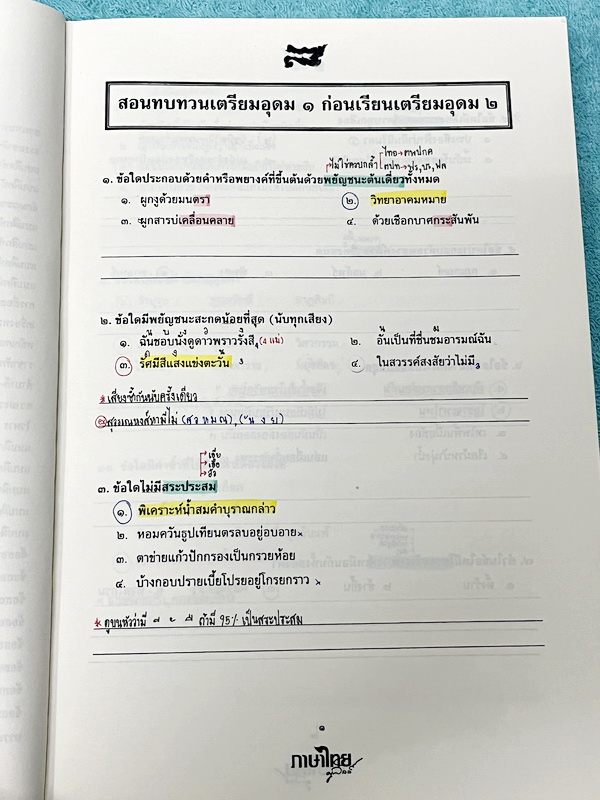 สอนทบทวนเตรียมอุดม ๑ ก่อนเรียนเตรียมอุดม ๒
ไม่ใช่ควบกล้ำ
๑. ข้อใดประกอบด้วยคำหรือพยางค์ที่ขึ้นต้นด้วยพยัญชนะต้นเดี่ยวทั้งหมด
๑. ผูกงูด้วยมนตรา
๒. วิทยาอาคมหมาย
๓. ผูกสารบ่เคลื่อนคลาย
๔. ด้วยเชือกบาศกระสันพัน
๒. ข้อใดมีพยัญชนะสะกดน้อยที่สุด (นับทุกเสียง)
๑. ฉันชอบนั่งดูดาวพราวรังสี 4 (4 แม่)
๒. อันเป็นที่ชื่นชมอารมณ์ฉัน
๓. รัศมีสีแสงแข่งตะวัน 3
๔. ในสวรรค์สงสัยว่าไม่มี 3
* เสียงซ้ำกันนับครั้งเดียว
เอีย
เอือ
อัว
๓. ข้อใดไม่มีสระประสม
๑. พิเคราะห์น้ำสมคำบุราณกล่าว
๒. หอมควันธูปเทียนตรลบอยู่อบอาย x
๓. ตาข่ายแก้วปักกรองเป็นกรวยห้อย
๔. บ้างกอบปรายเบี้ยโปรยอยู่โกรยกราว x
* ดูบนหัวว่ามี ถ้ามี 95% เป็นสระประสม
๑
ภาษาไทย